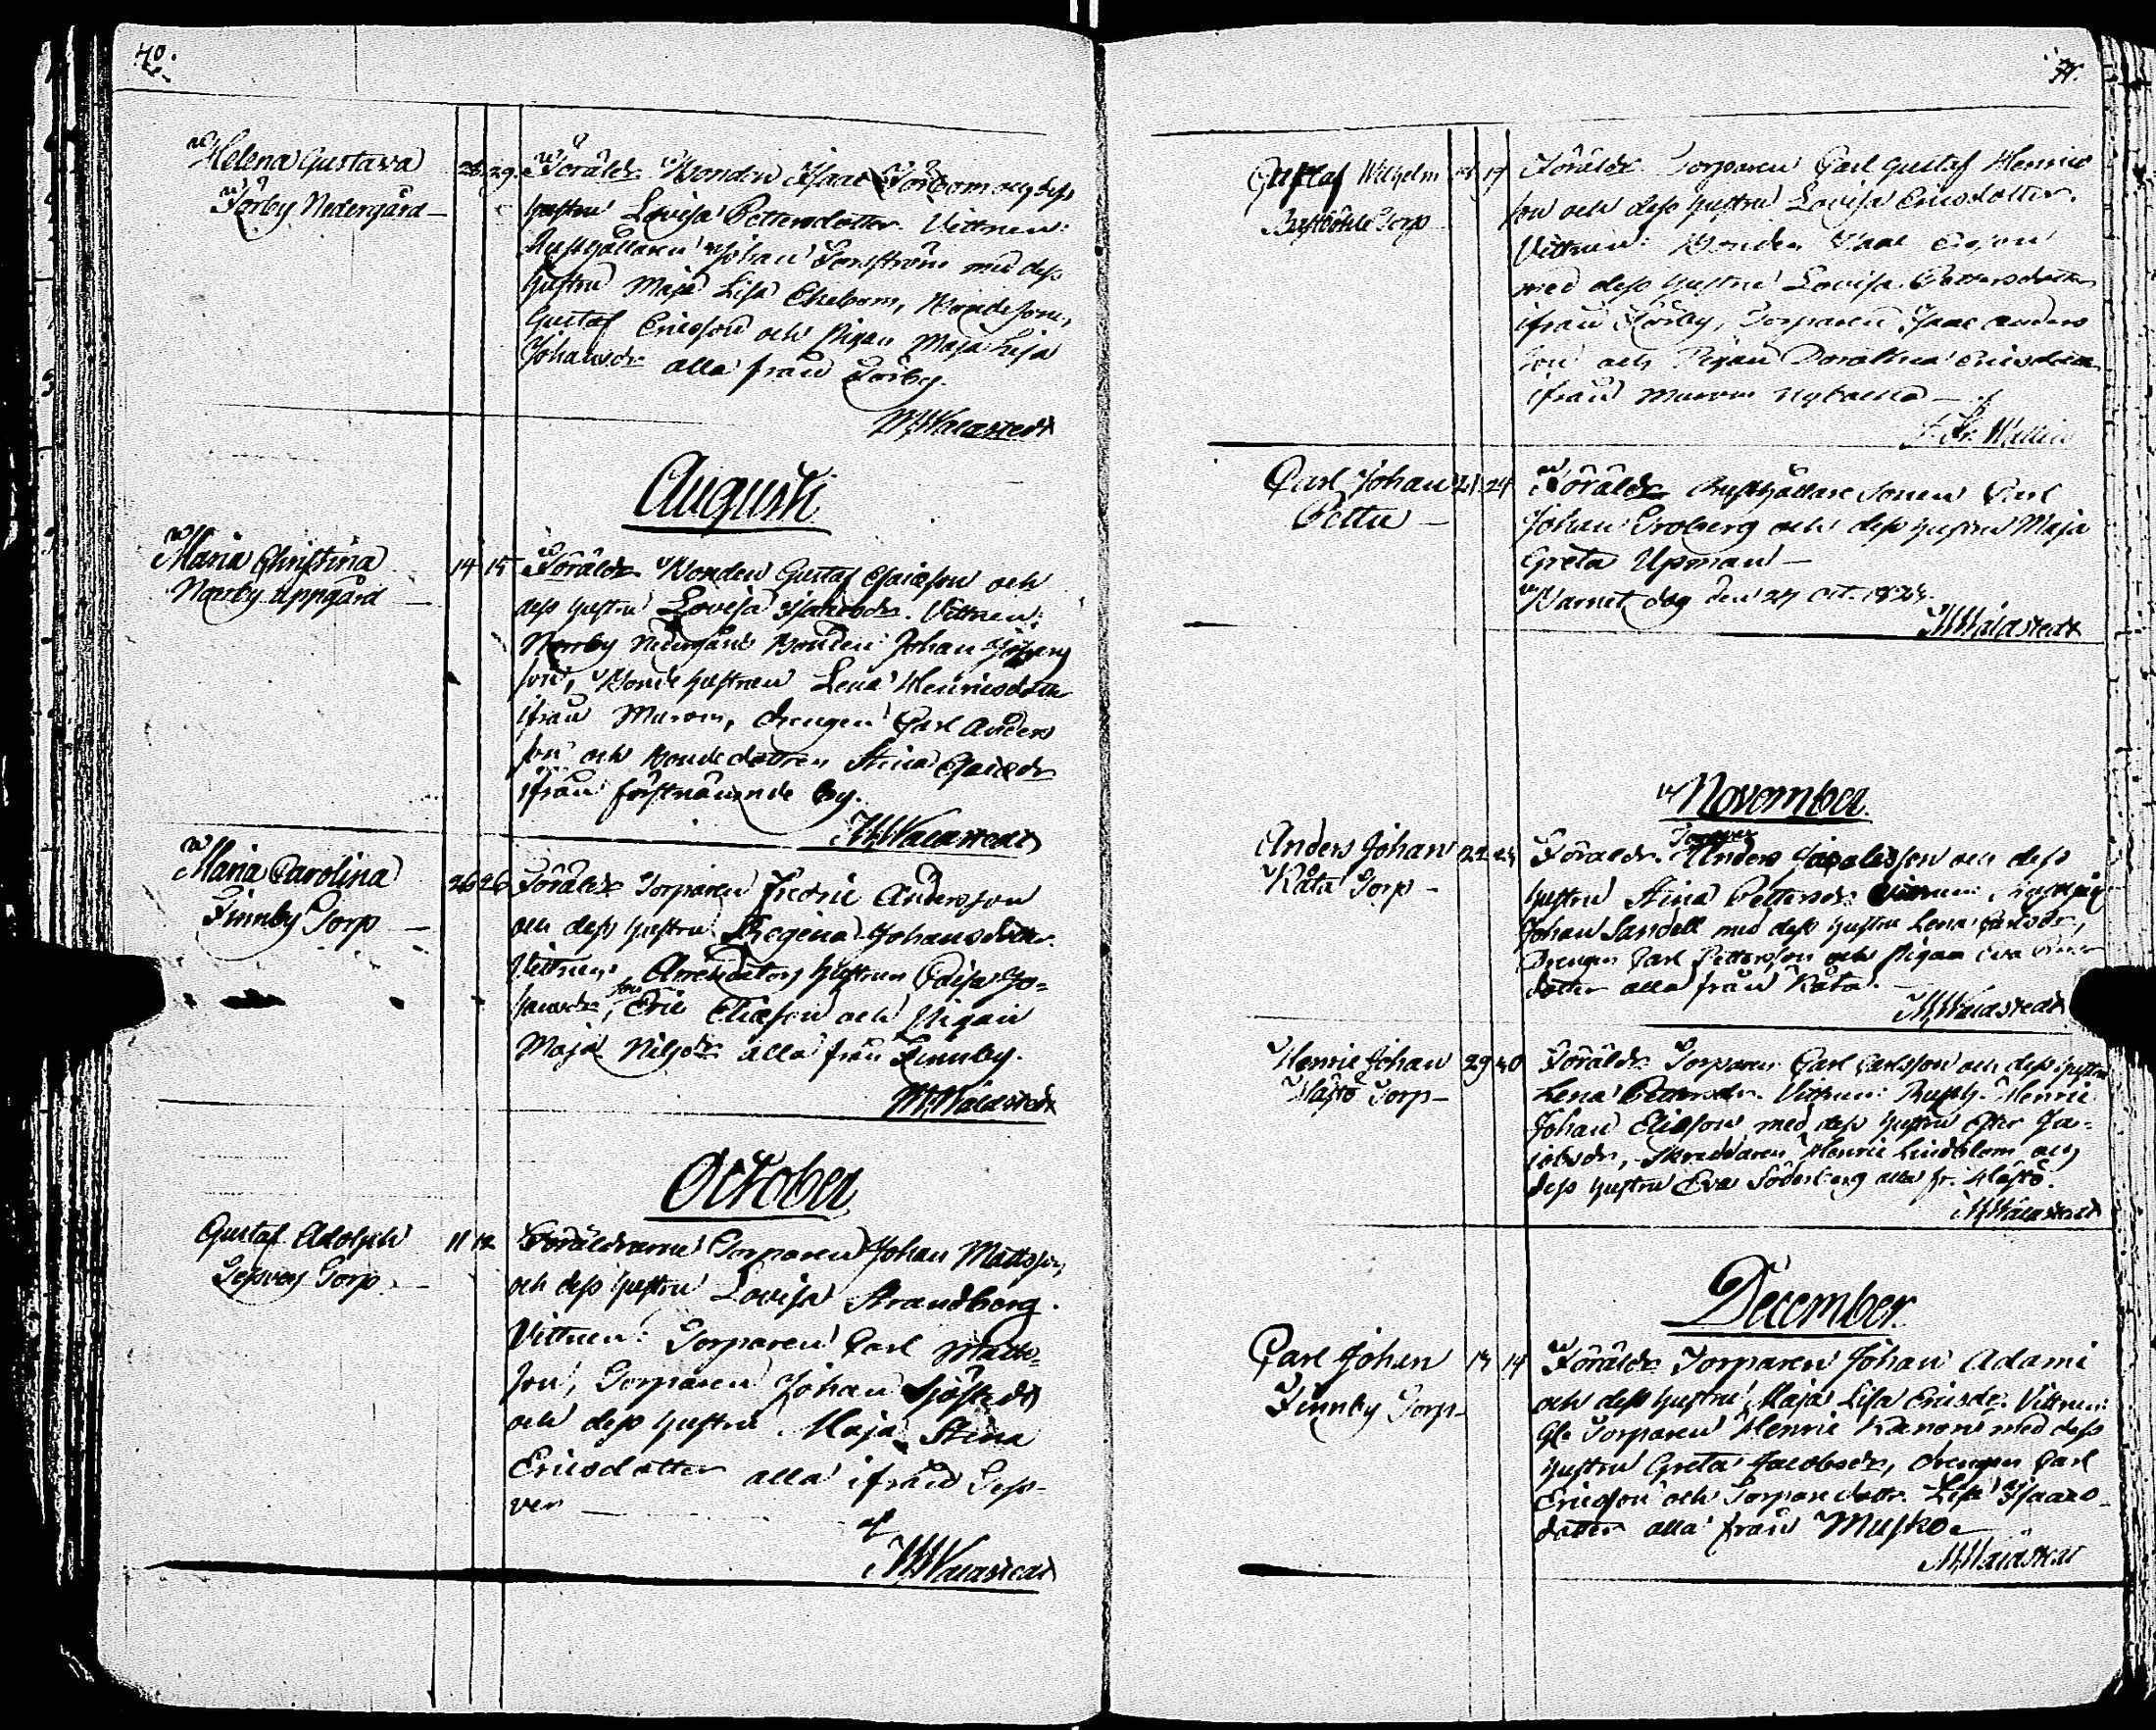 40.
Helena Gustava
Förby Nedergård
26. 29. Föräldr. Bonden Isaac Förbom och dess
hustru Lovisa Pettersdotter. Vittnen:
Rusthållaren Johan Forsström med dess
hustru Maja Lisa Ekebom, Bondesonen
Gustaf Ericsson och Pigan Maja Lisa
Johansdr alla från Förby.
M. Walastedt
Augusti
Maria Christina
Norrby uppgård
14 15 Föräldr. Bonden Gustaf Esaiæson och
dess hustru Lovisa Isaacsdr. Vittnen:
Norrby Nedergårds Bonden Johan
son, Bondehustrun Lena Henricsdotter
ifrån Murom, drengen Carl Anders
son och Bondedottren Stina Esaiædr
ifrån förstnämnde by.
M. Walastedt
Maria Carolina
Finnby Torp
26 26 Föräldr. Torparen Fredric Andersson
och dess hustru Regina Johansdotter.
Vittnen: Arrendators hustrun Caisa Jo-
hansdr, son Eric Eliæson och Pigan
Maja Nilsdr alla från Finnby.
M. Walastedt
October
Gustaf Adolph
Torp
11 12 Föräldrarne Torparen Johan Mattsson
och dess hustru Lovisa Strandberg.
Vittnen: Torparen Carl Matts-
son, Torparen Johan Sjöstedt
och dess hustru Maja Stina
Ericsdotter alla ifrån
ver
M. Walastedt
Gustaf Wilhelm
Torp
17 Föräldr. Torparen Carl Gustaf Henric
son och dess hustru Lovisa Ericsdotter.
Vittnen: Bonden
med dess hustru Lovisa Pettersdotter
ifrån Förby, Torparen Isaac Anders
son och Pigan Dorothea Ericsdotter
ifrån Murom Nybacka
Wallin
Carl Johan
Pettu
21 24 Föräldr. Rusthållare Sonen Carl
Johan Broberg och dess hustru Maja
Greta Upman
Barnet dog den 27 Oct.
M. Walastedt
November
Anders Johan
Råta Torp
22 Föräldr. Torparen Anders Jacobsson och dess
hustru Stina Pettersdr. Vittnen:
Johan Sandell med dess hustru Lena Carlsdr,
Drengen Carl Pettersson och Pigan Eva
dotter alla från Råta.
M. Walastedt
Henric Johan
Torp
29 30 Föräldr. Torparen Carl Carlsson och dess hustru
Lena Pettersdr. Vittnen: Rusth. Henric
Johan Eliæson med dess hustru Ester Ja-
cobsdr, Skreddaren Henric Lindblom och
dess hustru Eva Söderberg alla fr.
M. Walastedt
December.
Carl Johan
Finnby Torp
13 14 Föräldr. Torparen Johan Adami
och dess hustru Maja Lisa Ericsdr. Vittnen:
Gl. Torparen Henric Kanon med dess
hustru Greta Jacobsdr, drengen Carl
Ericsson och Torpare dottr. Lisa Isaacs-
dotter alla från Muskoe
M. Walastedt